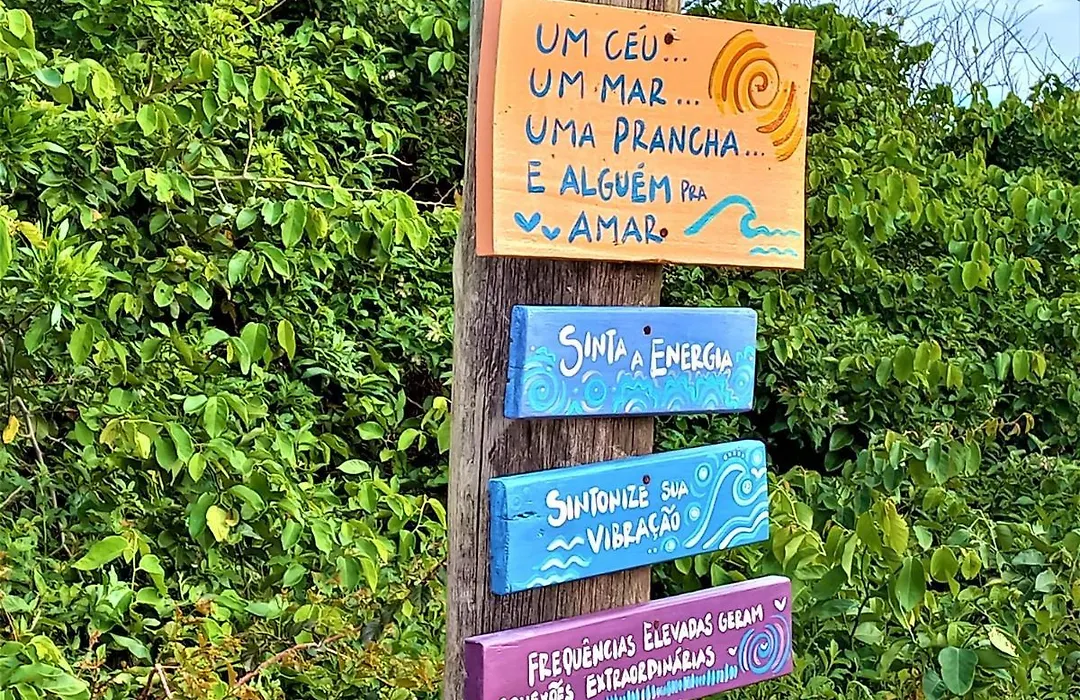 UM CÉU...
UM MAR...
UMA PRANCHA...
E ALGUÉM PRA
AMAR
SINTA A ENERGIA
SINTONIZE SUA
VIBRAÇÃO
FREQUÊNCIAS ELEVADAS GERAM
EXTRAORDINÁRIAS